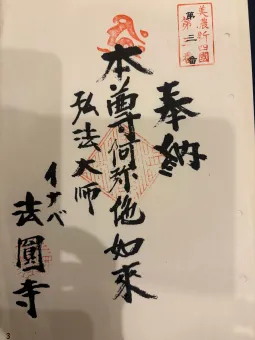 美濃新四國
第三番
奉納
本尊阿弥陀如来
弘法大師
イナベ
法圓寺
3